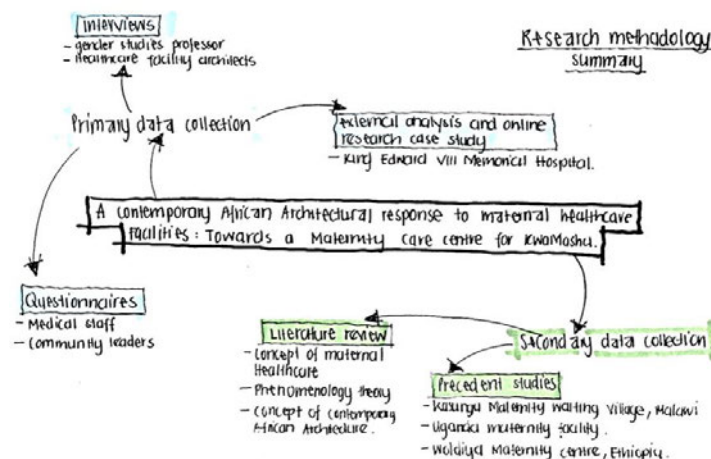 Interviews
- gender studies professor
- Healthcare facility architects
Research methodology
summary
Primary data collection
External analysis and online
research case study
- King Edward VIII Memorial Hospital.
A contemporary African Architectural response to maternal healthcare
facilities: Towards a Maternity care centre for KwaMashu.
Questionnaires
- Medical staff
- Community leaders
Literature review
- Concept of maternal
Healthcare
- Phenomenology theory
- Concept of contemporary
African Architecture.
Secondary data collection
Precedent studies
- Kasungu Maternity waiting Village, Malawi
- Uganda maternity facility.
- Woldiya Maternity centre, Ethiopia.